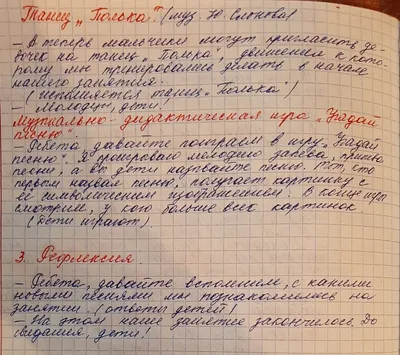 Танец „Полька". (муз. Ю Слонова)
– А теперь мальчики могут пригласить де-
вочек на танец „Полька", движения к кото-
рому мы тренировались делать в начале
нашего занятия.
(исполняется танец „Полька")
– Молодцы, дети!
Музыкально-дидактическая игра „Угадай
песню".
– Ребята, давайте поиграем в игру „Угадай
песню". Я проиграю мелодию запева, припева
песни, а вы дети называйте песню. Тот, кто
первым назвал песню, получает картинку с
её символическим изображением. В конце игры
смотрим, у кого больше всех картинок
(Дети играют).
3. Рефлексия.
– Ребята, давайте вспомним, с какими
новыми песнями мы познакомились на
занятии. (ответы детей)
– На этом наше занятие закончилось. До
свидания, дети!